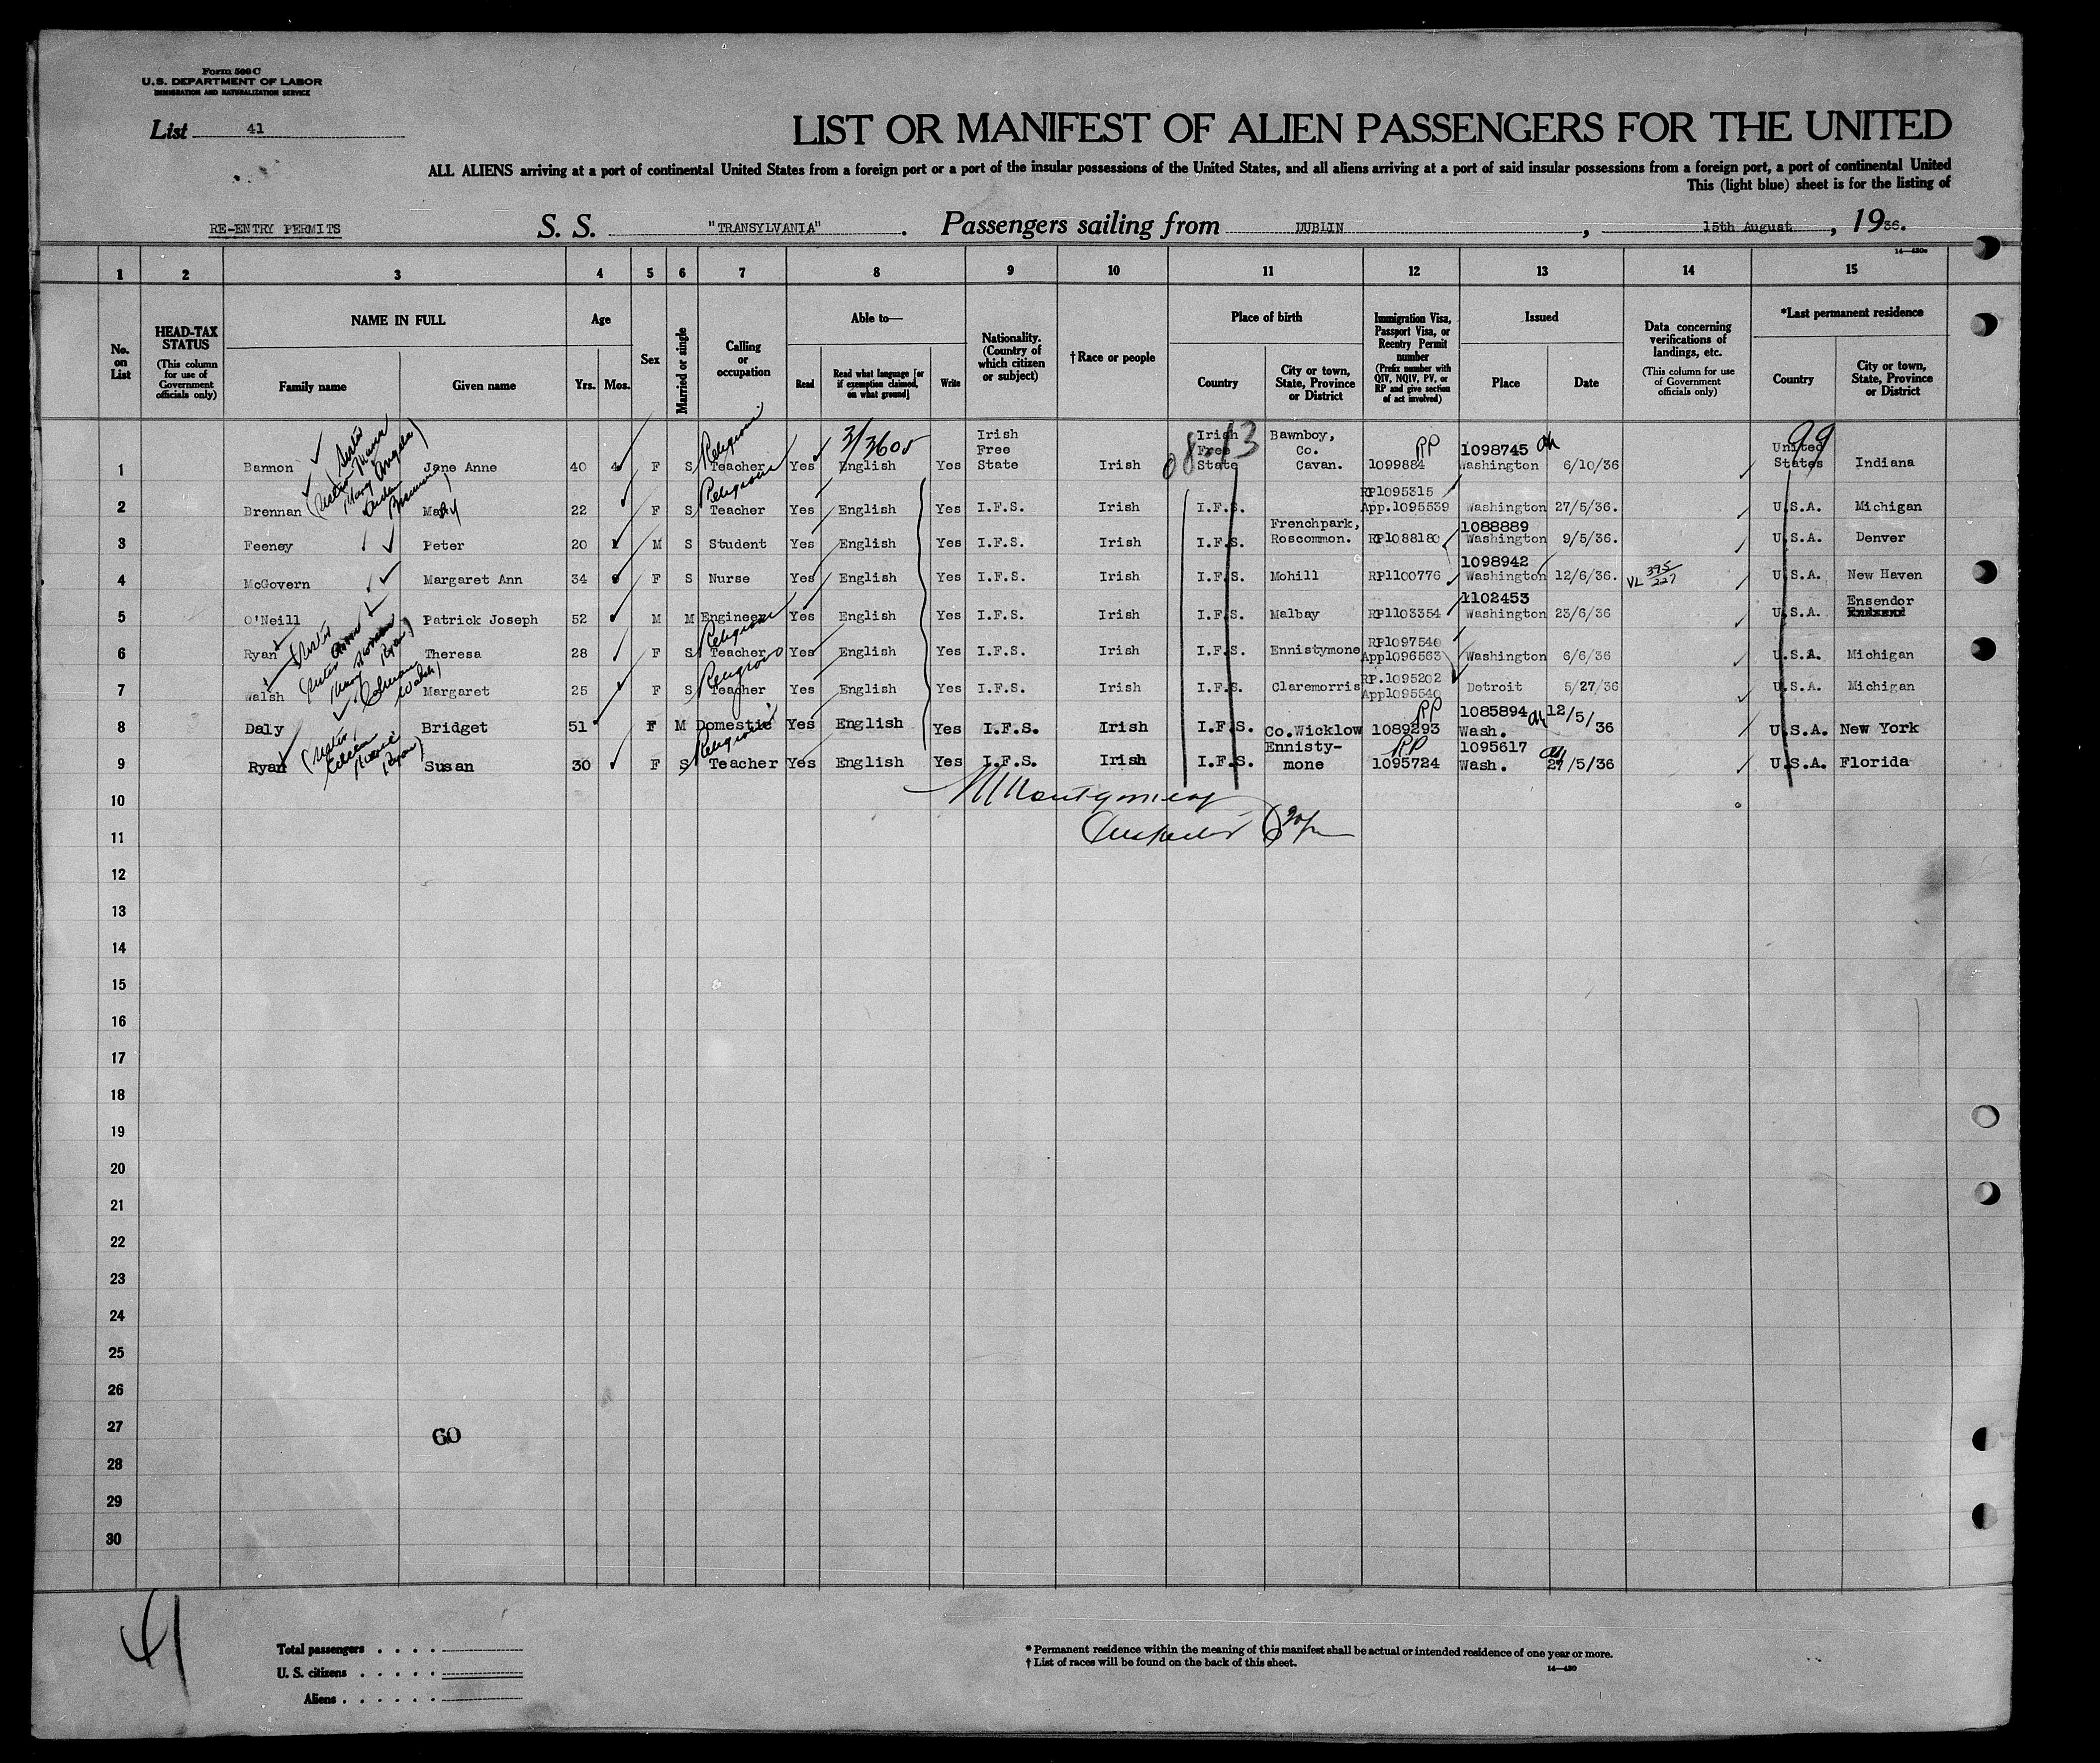 Form 500 C
U.S. DEPARTMENT OF LABOR
IMMIGRATION AND NATURALIZATION SERVICE
List 41
LIST OR MANIFEST OF ALIEN PASSENGERS FOR THE UNITED
ALL ALIENS arriving at a port of continental United States from a foreign port or a port of the insular possessions of the United States, and all aliens arriving at a port of said insular possessions from a foreign port, a port of continental United
This (light blue) sheet is for the listing of
RE-ENTRY PERMITS S. S. "TRANSYLVANIA". Passengers sailing from DUBLIN, 15th August, 1936.
14—430
1 2 3 4 5 6 7 8 9 10 11 12 13 14 15
No. on List
HEAD-TAX STATUS (This column for use of Government officials only)
NAME IN FULL Family name Given name
Age Yrs. Mos.
Sex
Married or single
Calling or occupation
Able to— Read Read what language [or if exemption claimed, on what ground] Write
Nationality. (Country of which citizen or subject)
†Race or people
Place of birth Country City or town, State, Province or District
Immigration Visa, Passport Visa, or Reentry Permit number (Prefix number with QIV, NQIV, PV, or RP and give section of act involved)
Issued Place Date
Data concerning verifications of landings, etc. (This column for use of Government officials only)
*Last permanent residence Country City or town, State, Province or District
3/3605 08.13 99
1 Bannon (Sister Mary Angela) Jane Anne 40 F S Religious Teacher Yes English Yes Irish Free State Irish Irish Free State Bawnboy, Co. Cavan. RP 1099884 1098745 Washington 6/10/36 United States Indiana
2 Brennan Mary 22 F S Religious Teacher Yes English Yes I.F.S. Irish I.F.S. RP1095315 App.1095539 Washington 27/5/36. U.S.A. Michigan
3 Feeney Peter 20 M S Student Yes English Yes I.F.S. Irish I.F.S. Frenchpark, Roscommon. RP1088180 1088889 Washington 9/5/36. U.S.A. Denver
4 McGovern Margaret Ann 34 F S Nurse Yes English Yes I.F.S. Irish I.F.S. Mohill RP1100776 1098942 Washington 12/6/36. VL 395/227 U.S.A. New Haven
5 O'Neill Patrick Joseph 52 M M Engineer Yes English Yes I.F.S. Irish I.F.S. Malbay RP1103354 1102453 Washington 23/6/36 U.S.A. Ensendor
6 Ryan Theresa 28 F S Religious Teacher Yes English Yes I.F.S. Irish I.F.S. Ennistymone RP1097540 App1096563 Washington 6/6/36 U.S.A. Michigan
7 Walsh Margaret 25 F S Religious Teacher Yes English Yes I.F.S. Irish I.F.S. Claremorris RP.1095202 App1095540 Detroit 5/27/36 U.S.A. Michigan
8 Daly Bridget 51 F M Domestic Yes English Yes I.F.S. Irish I.F.S. Co.Wicklow RP 1089293 1085894 Wash. 12/5/36 U.S.A. New York
9 Ryan (Sister Eileen Marie Ryan) Susan 30 F S Religious Teacher Yes English Yes I.F.S. Irish I.F.S. Ennisty-mone RP 1095724 1095617 Wash. 27/5/36 U.S.A. Florida
10 Montgomery
11 Inspector
12
13
14
15
16
17
18
19
20
21
22
23
24
25
26
27
60
28
29
30
41
Total passengers
U. S. citizens
Aliens
* Permanent residence within the meaning of this manifest shall be actual or intended residence of one year or more.
† List of races will be found on the back of this sheet.
14—430